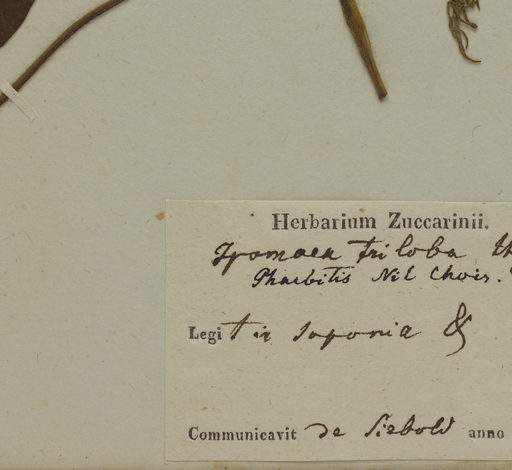 Herbarium Zuccarinii.
Ipomaea triloba Th
Pharbitis Nil Chois.
Legit in Japonia &
Communicavit de Siebold anno